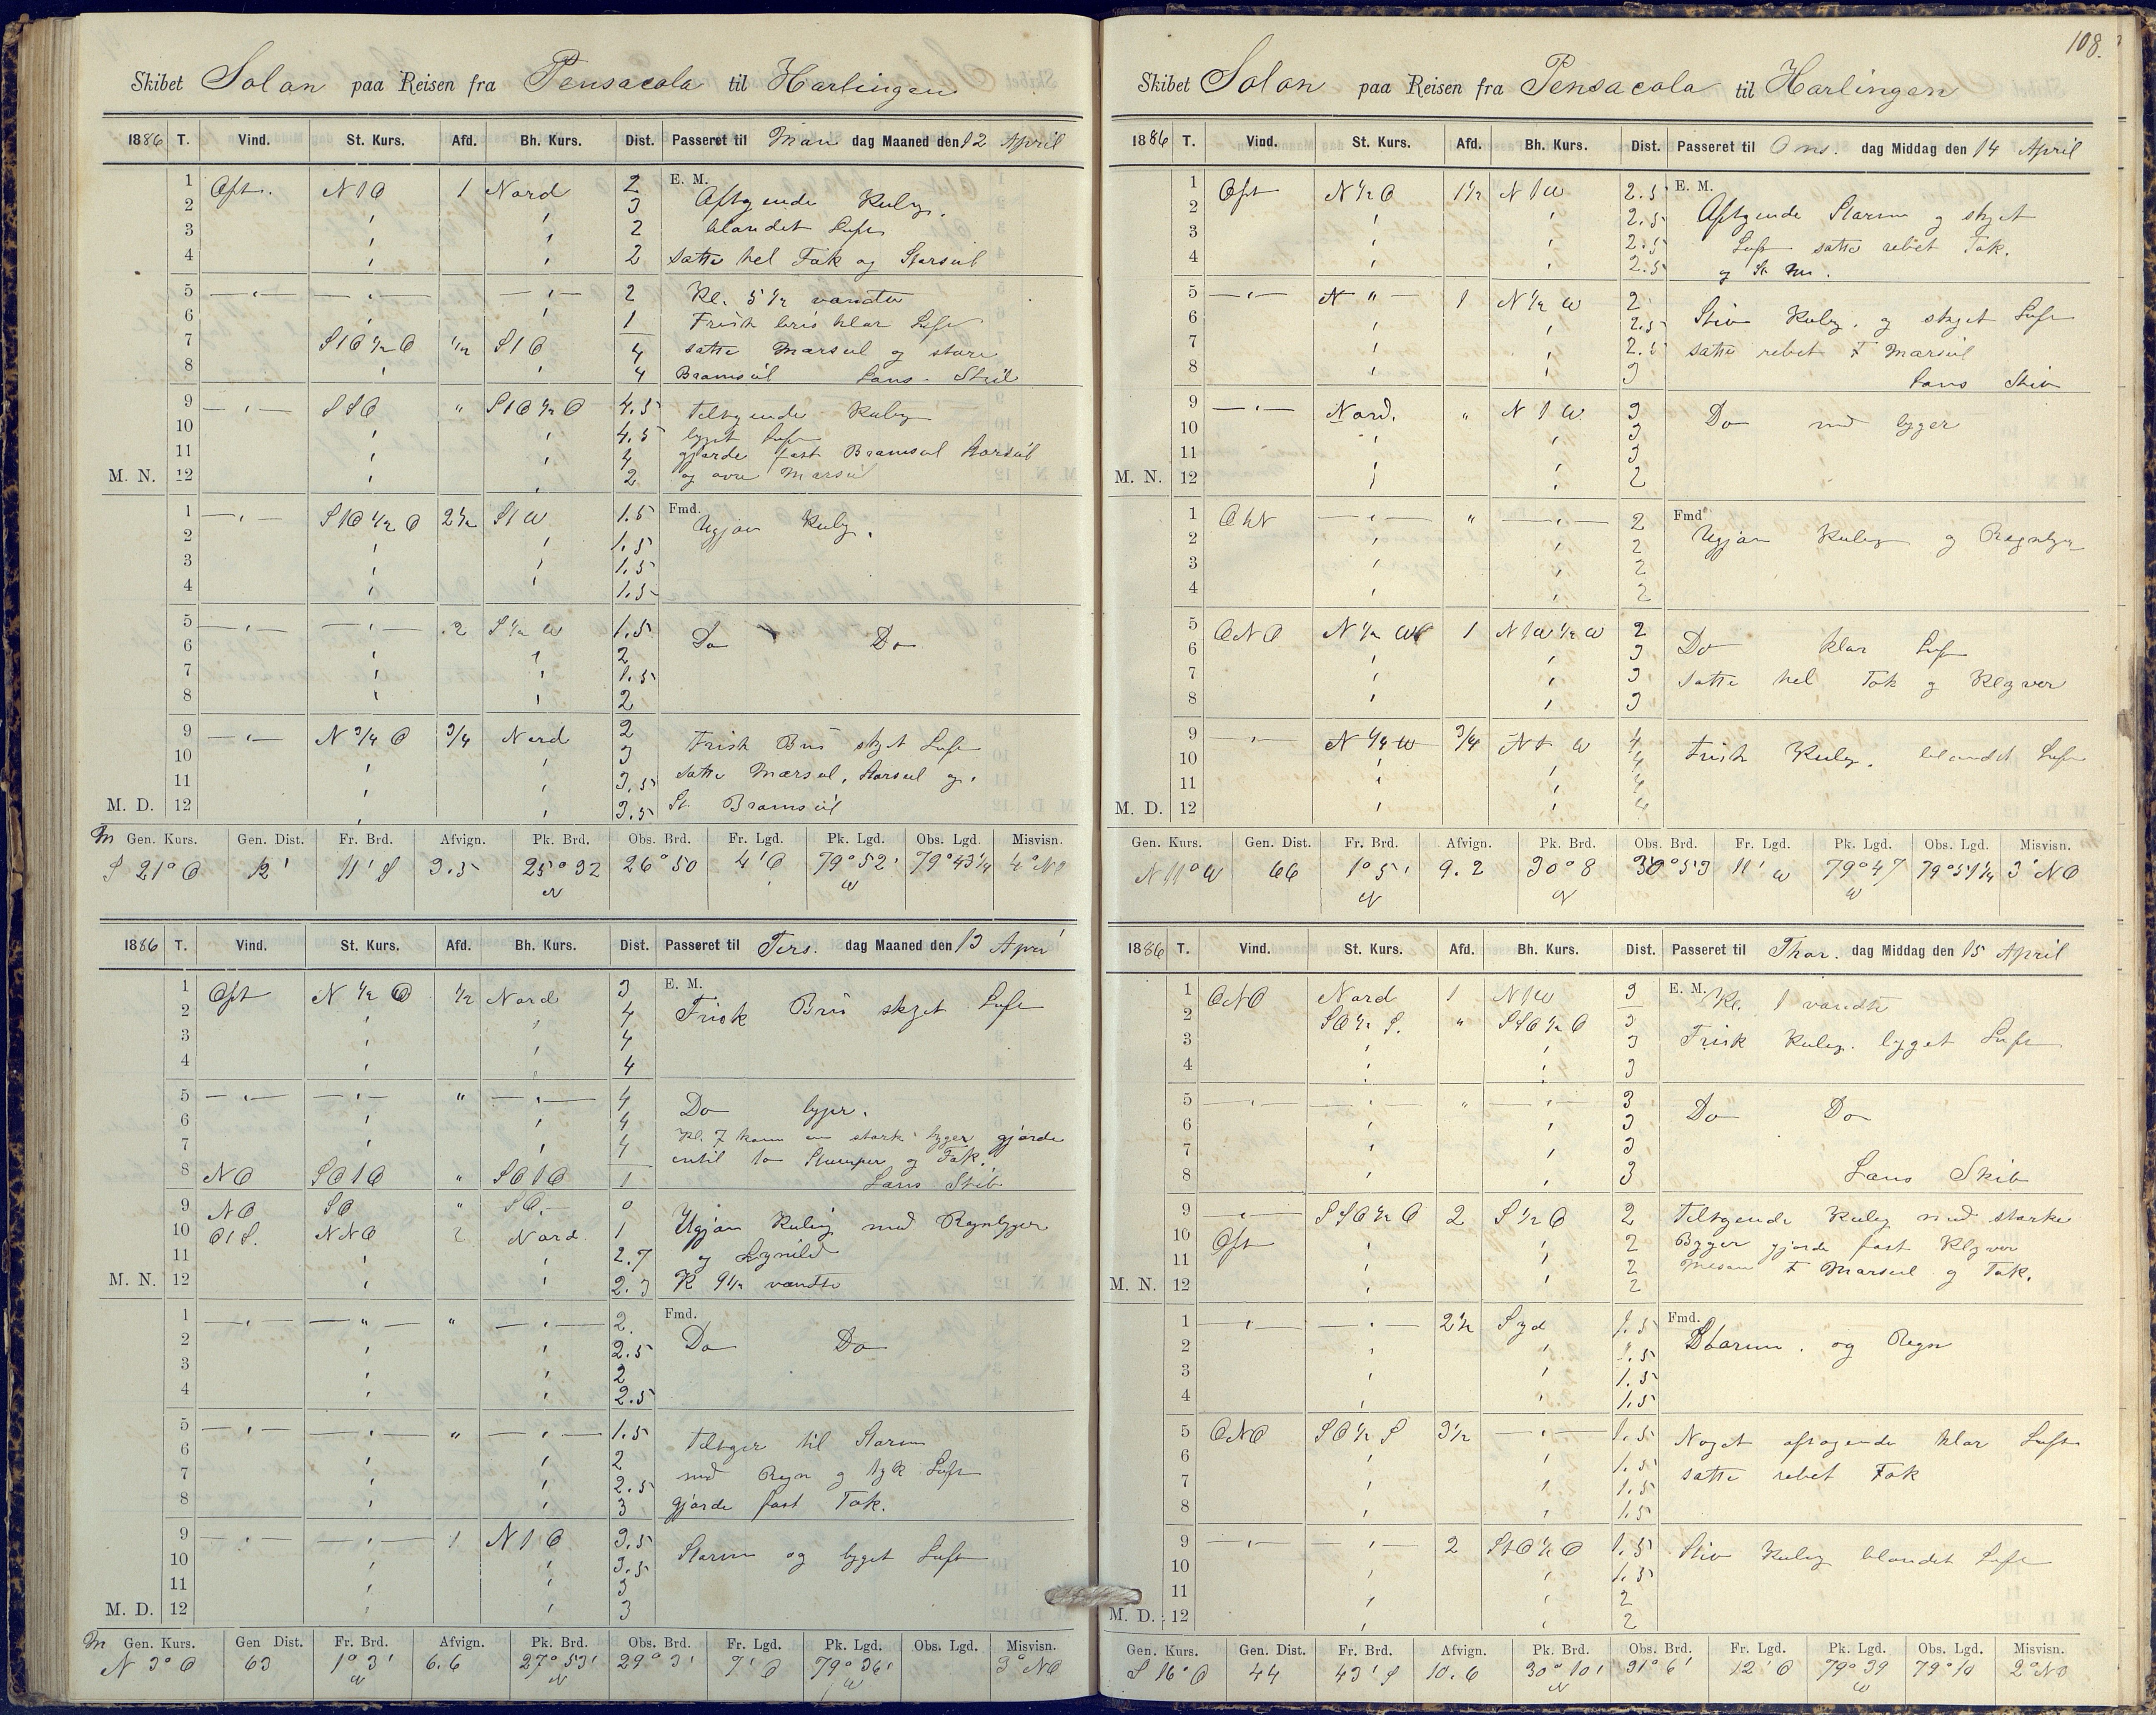 Skibet Solon paa Reisen fra Pensacola til Harlingen
1886 T. Vind. St. Kurs. Afd. Bh. Kurs. Dist. Passeret til Man dag Maaned den 12 April
1 Ost. N 1 O 1 Nord 2 E. M.
2 3 Aftgende Kuling.
3 2 blandet Luft
4 2 satte hel Fok og Storseil
5 2 Kl. 5 1/2 vendte
6 1 Frisk bris klar Luft
7 S1O 1/2 O 1/2 S1O 4 satte Mærseil og store
8 4 Bramseil Lans. Skib
9 SSO " S1O 1/2 O 4.5 Tiltgende Kuling
10 4.5 byget Luft
11 4 gjorde fast Bramseil Storseil
M. N. 12 2 og øvre Mærseil
1 S1O 1/2 O 2 1/2 S1W 1.5 Fmd.
2 1.5 Ugjævn Kuling.
3 1.5
4 1.5
5 2 S 1/2 W 1.5
6 2 Do Do
7 1.5
8 2
9 N 3/4 O 3/4 Nord 2
10 3 Frisk Bris skyet Luft
11 3.5 satte Mærseil, Storseil og
M. D. 12 3.5 St. Bramseil
M Gen. Kurs. Gen. Dist. Fr. Brd. Afvign. Pk. Brd. Obs. Brd. Fr. Lgd. Pk. Lgd. Obs. Lgd. Misvisn.
S 21° O 12' 11' S 3.5 25° 32 N 26° 50 4' O 79° 52' W 79° 43 1/4 4° NO
1886 T. Vind. St. Kurs. Afd. Bh. Kurs. Dist. Passeret til Tirs. dag Maaned den 13 April
1 Ost N 1/2 O 1/2 Nord 3 E. M.
2 4 Frisk Bris skyet Luft
3 4
4 4
5 " 4 Do byger.
6 4
7 4 Kl. 7 kom en stærk byger gjorde
8 NO SO1O " SO1O 1 Lans Skib
9 NO SO " SO. 0
10 O1S. NNO 2 Nord 1 Ugjævn Kuling med Regnbyger
11 2.7 og Lynild
M. N. 12 2.3 K 9 1/2 vendte
1 " " 2. Fmd.
2 2.5 Do Do
3 2
4 2.5
5 " 1.5 Tiltger til Storm
6 2
7 2.5 med Regn og tyk Luft
8 3 gjorde fast Fok.
9 1 N 1 O 3.5
10 3.5 Storm og byget Luft
11 3
M. D. 12 3
M Gen. Kurs. Gen Dist. Fr. Brd. Afvign. Pk. Brd. Obs. Brd. Fr. Lgd. Pk. Lgd. Obs. Lgd. Misvisn.
N 3° O 63 1° 3' N 6.6 27° 53' N 29° 3' 7' O 79° 36' W 3° NO
108.
Skibet Solon paa Reisen fra Pensacola til Harlingen
1886 T. Vind. St. Kurs. Afd. Bh. Kurs. Dist. Passeret til Ons. dag Middag den 14 April
1 Ost N 1/2 O 1 1/2 N 1 W 2.5 E. M.
2 2.5 Aftgende Storm og skyet
3 2.5 Luft satte rebet Fok.
4 2.5 og St. M.
5 N " 1 N 1/2 W 2
6 2.5 Stiv Kuling. og skyet Luft
7 2.5 satte rebet F Mærseil
8 3 Lans Skib
9 Nord. " N 1 W 3
10 3 Do med byger
11 3
M. N. 12 2
1 OtN " 2 Fmd
2 2 Ugjævn Kuling og Regnbyger
3 2
4 2
5 ONO N 1/2 W 1 N1W 1/2 W 2
6 3 Do klar Luft
7 3 satte hel Fok og Klyver
8 3
9 N 1/4 W 3/4 N 1 W 4
10 4 Frisk Kuling. blandet Luft
11 4
M. D. 12 4
Gen. Kurs. Gen. Dist. Fr. Brd. Afvign. Pk. Brd. Obs. Brd. Fr. Lgd. Pk. Lgd. Obs. Lgd. Misvisn.
N 11° W 66 1° 5' N 9.2 30° 8 N 30° 53 11' W 79° 47 W 79° 51 1/4 3° NO
1886 T. Vind. St. Kurs. Afd. Bh. Kurs. Dist. Passeret til Thor. dag Middag den 15 April
1 ONO Nord 1 N1W 3 E. M. Kl. 1 vendte
2 SO 1/2 S. " SSO 1/2 O 3
3 3 Frisk Kuling. byget Luft
4 3
5 " 3
6 3 Do Do
7 3
8 3 Lans Skib
9 SSO 1/2 O 2 S 1/2 O 2 Tiltgende Kuling med stærke
10 Ost 2 Byger gjorde fast Klyver
11 2 Mesan F Mærseil og Fok.
M. N. 12 2
1 2 1/2 Syd 1.5 Fmd.
2 1.5 Storm. og Regn
3 1.5
4 1.5
5 ONO SO 1/2 S 3 1/2 1.5 Noget aftagende klar Luft
6 1.5
7 1.5 satte rebet Fok
8 1.5
9 2 StO 1/2 O 1.5
10 1.5 Stiv Kuling blandet Luft
11 2
M. D. 12 2
Gen. Kurs. Gen. Dist. Fr. Brd. Afvign. Pk. Brd. Obs. Brd. Fr. Lgd. Pk. Lgd. Obs. Lgd. Misvisn.
S 16° O 44 43' S 10.6 30° 10' N 31° 6' 12' O 79° 39 W 79° 10 2° NO